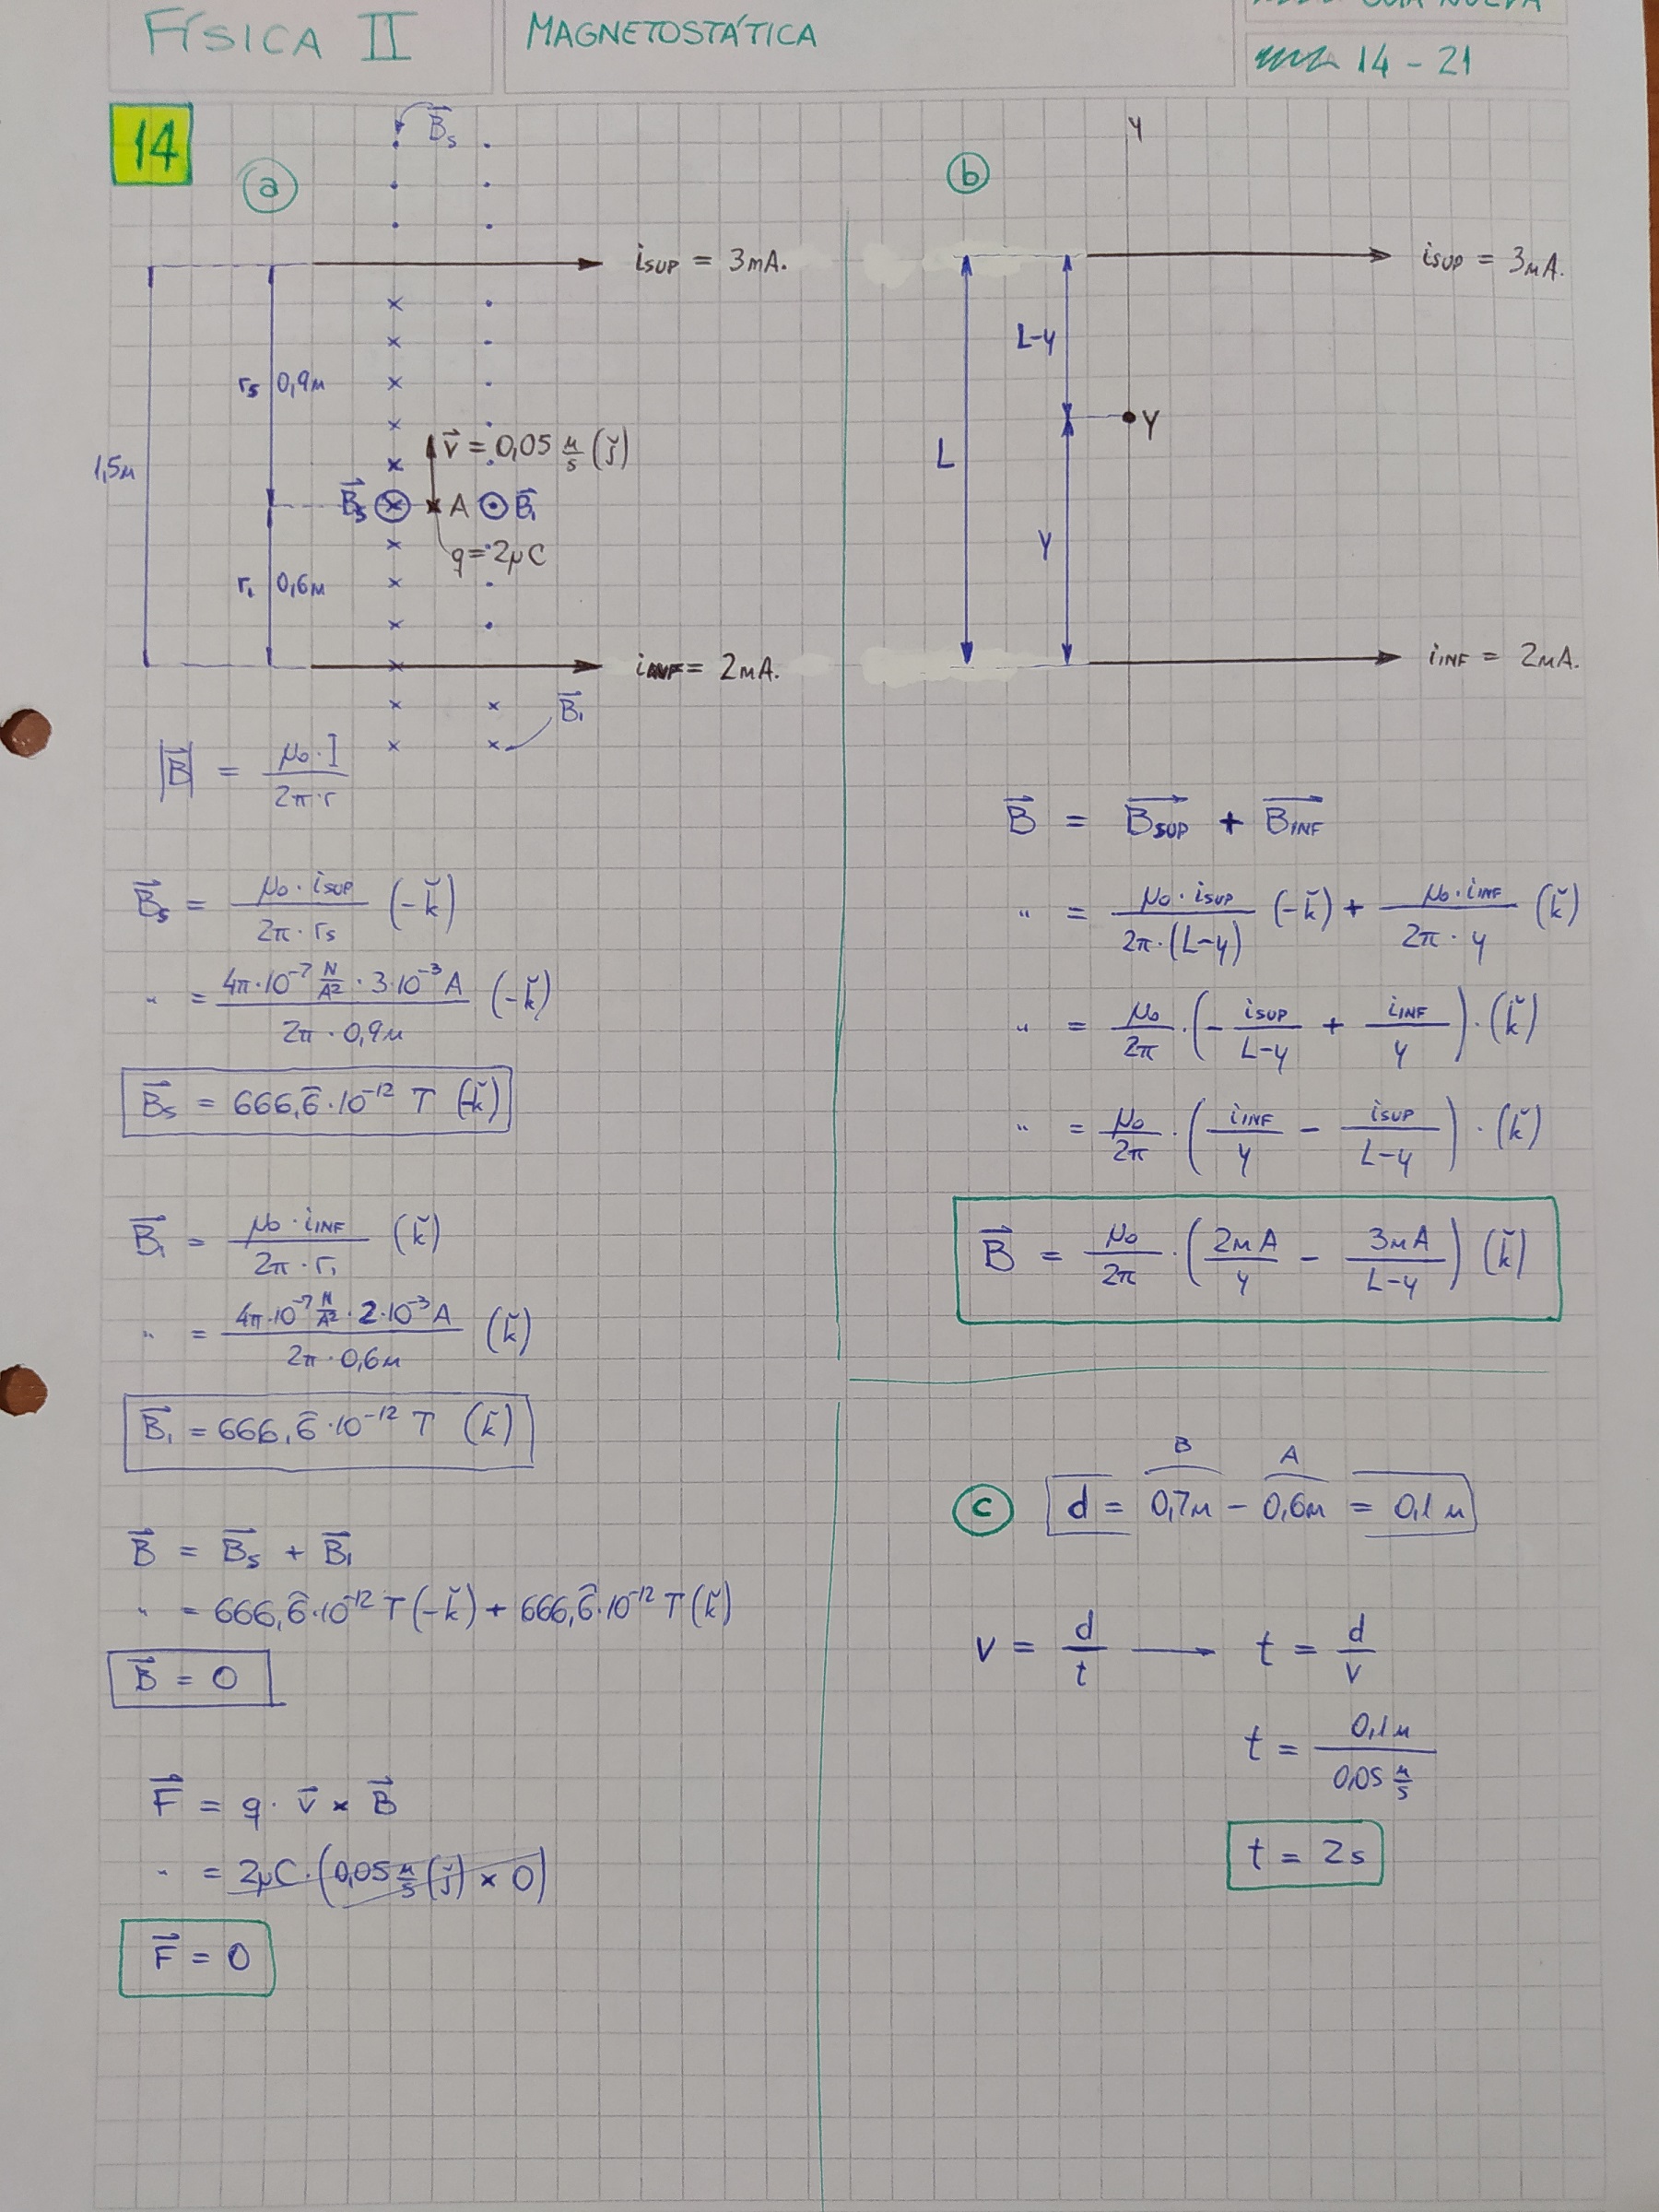 FÍSICA II
MAGNETOSTÁTICA
GUÍA NUEVA
14 - 21
14
a
B⃗s
iSUP = 3mA.
rs 0,9m
1,5m
v⃗ = 0,05 m/s (ǰ)
B⃗s A B⃗i
q = 2μC
ri 0,6m
iINF = 2mA.
B⃗i
|B⃗| = μ0 · I / 2π · r
B⃗s = μ0 · iSUP / 2π · rs (-ǩ)
" = 4π·10⁻⁷ N/A² · 3·10⁻³ A / 2π · 0,9m (-ǩ)
B⃗s = 666,6̂·10⁻¹² T (-ǩ)
B⃗i = μ0 · iINF / 2π · ri (ǩ)
" = 4π·10⁻⁷ N/A² · 2·10⁻³ A / 2π · 0,6m (ǩ)
B⃗i = 666,6̂·10⁻¹² T (ǩ)
B⃗ = B⃗s + B⃗i
" = 666,6̂·10⁻¹² T (-ǩ) + 666,6̂·10⁻¹² T (ǩ)
B⃗ = 0
F⃗ = q · v⃗ × B⃗
" = 2μC · (0,05 m/s (ǰ) × 0)
F⃗ = 0
b
y
iSUP = 3mA.
L-y
y
L
y
iINF = 2mA.
B⃗ = B⃗SUP + B⃗INF
" = μ0 · iSUP / 2π · (L-y) (-ǩ) + μ0 · iINF / 2π · y (ǩ)
" = μ0 / 2π · (- iSUP / L-y + iINF / y) · (ǩ)
" = μ0 / 2π · (iINF / y - iSUP / L-y) · (ǩ)
B⃗ = μ0 / 2π · (2mA / y - 3mA / L-y) (ǩ)
B A
c d = 0,7m - 0,6m = 0,1m
v = d / t → t = d / v
t = 0,1m / 0,05 m/s
t = 2s